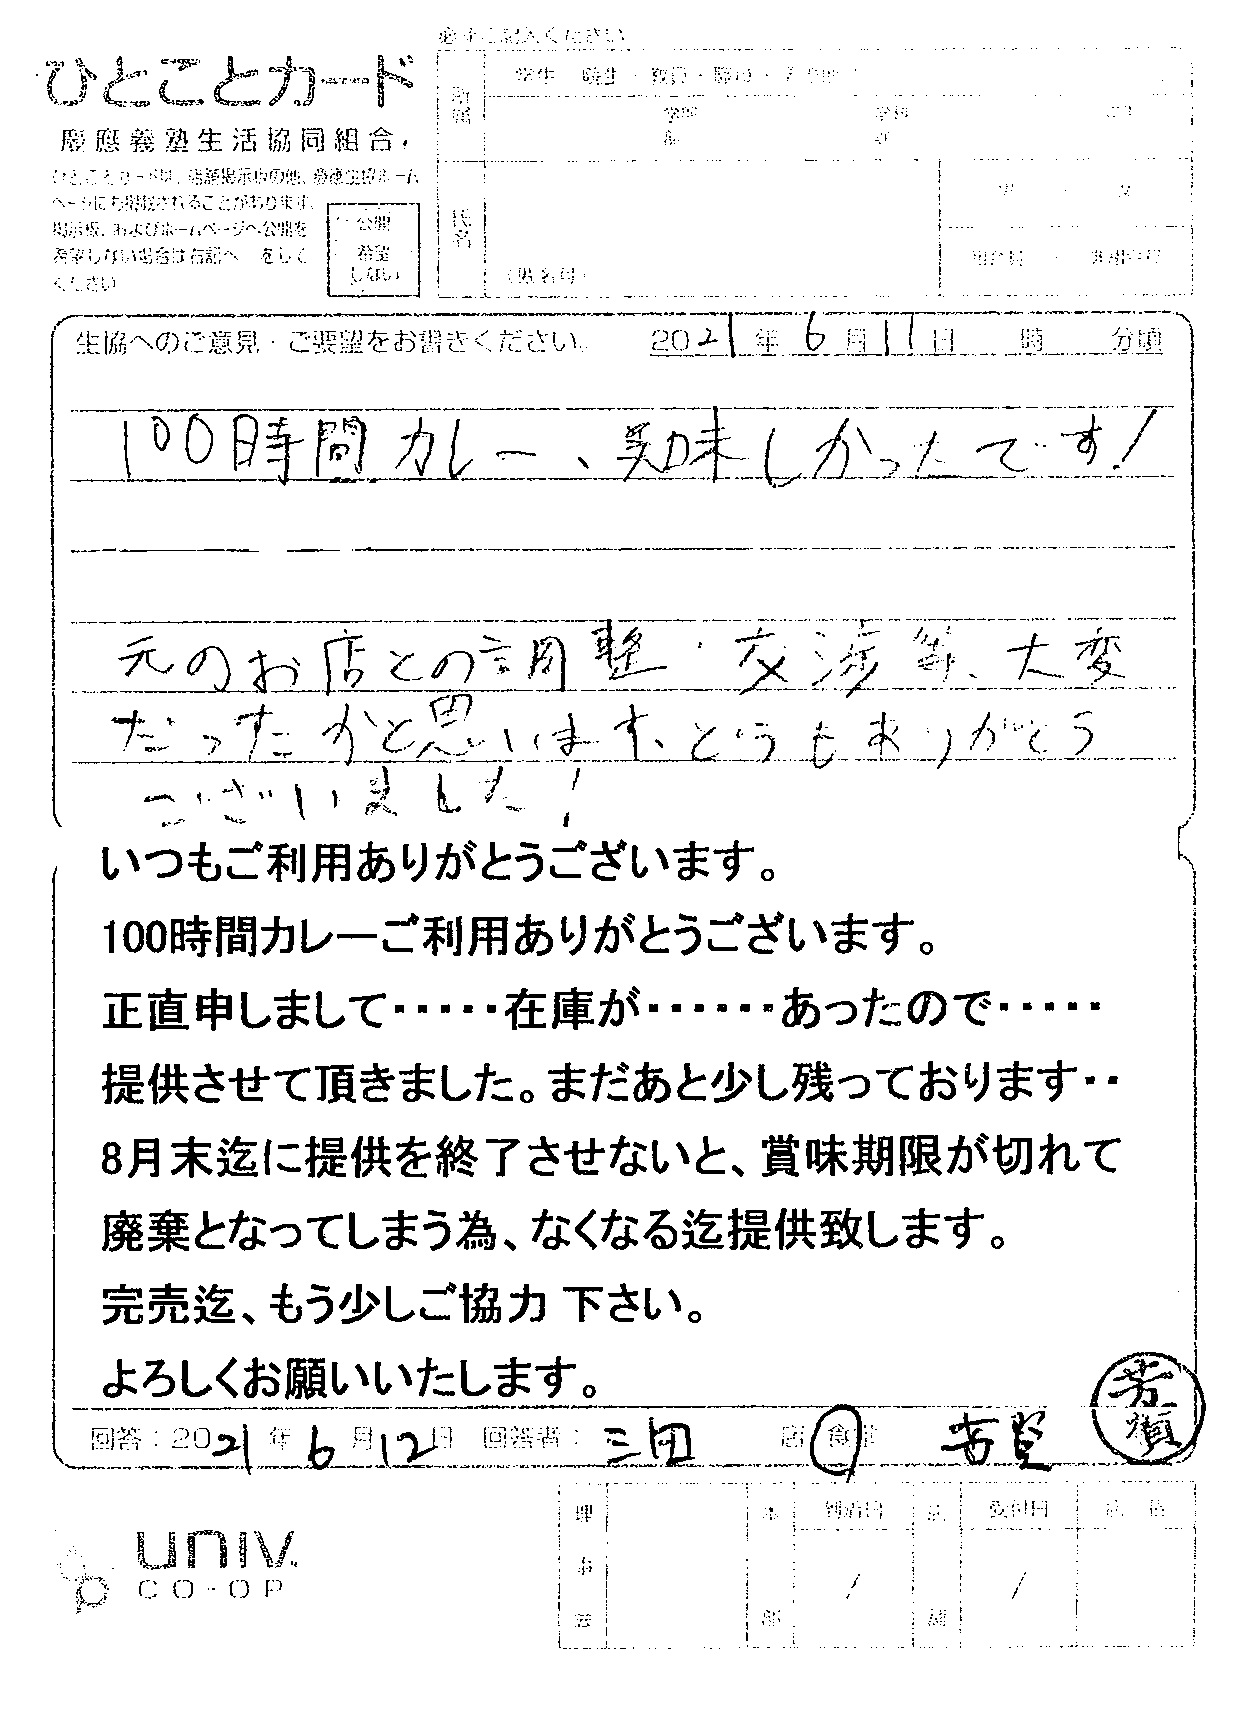 必ずご記入ください
ひとことカード
慶應義塾生活協同組合
ひとことカードは、店頭掲示板の他、慶應生協ホーム
ページにも掲載されることがあります。
掲示板、およびホームページへ公開を
希望しない場合は右記へ をして
ください
公開
希望
しない
所属
学生
教員
職員
学部
学科
氏名
(匿名可)
男
女
生協へのご意見・ご要望をお書きください。
2021年6月11日 時 分頃
100時間カレー、美味しかったです!
元のお店との調整・交渉等、大変
だったかと思います、どうもありがとう
ございました!
いつもご利用ありがとうございます。
100時間カレーご利用ありがとうございます。
正直申しまして・・・・・在庫が・・・・・・あったので・・・・・
提供させて頂きました。まだあと少し残っております・・
8月末迄に提供を終了させないと、賞味期限が切れて
廃棄となってしまう為、なくなる迄提供致します。
完売迄、もう少しご協力 下さい。
よろしくお願いいたします。
回答:2021年6月12日 回答者:三田 店 食堂 芳賀
univ.
CO-OP
理事会
本部
到着日
店舗
受付日
/
/